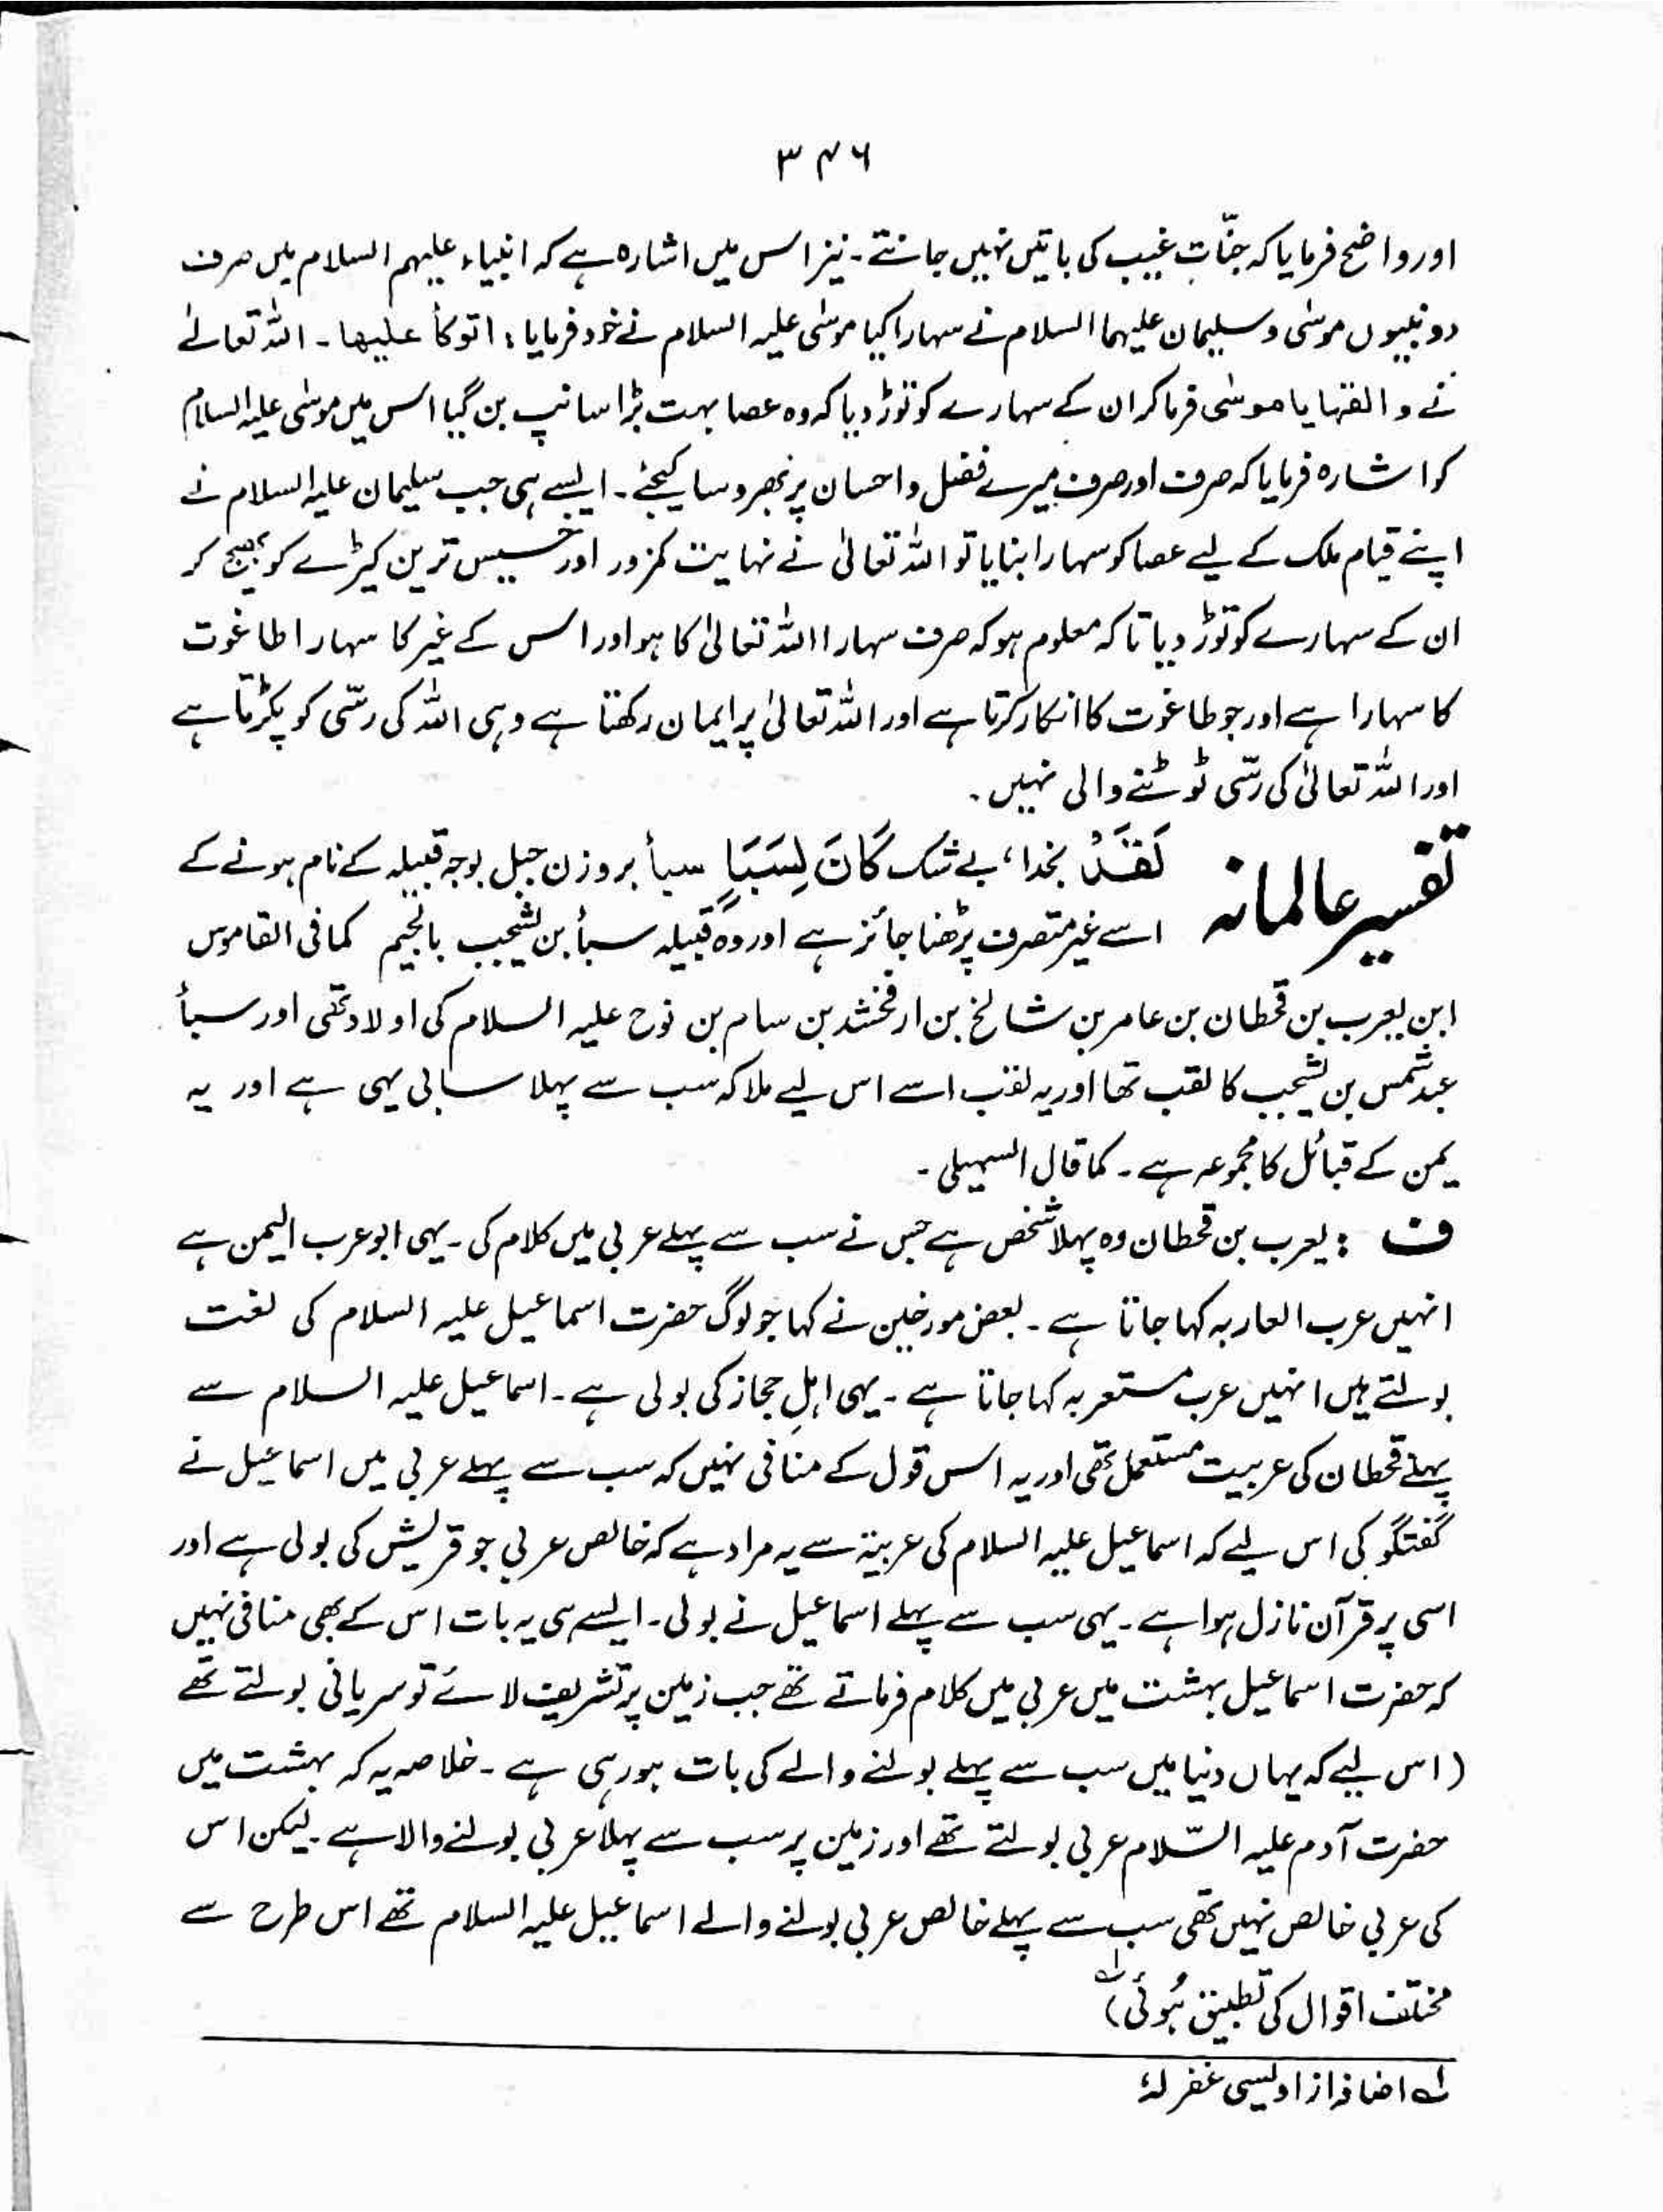 ۳۴۶
اور واضح فرمایا کہ جنّات غیب کی باتیں نہیں جانتے۔ نیز اس میں اشارہ ہے کہ انبیاء علیہم السلام میں صرف
دو نبیوں موسٰی و سلیمان علیہما السلام نے سہارا کیا موسٰی علیہ السلام نے خود فرمایا: اتوکأ علیھا۔ اللہ تعالےٰ
نے و القھا یا موسٰی فرما کر ان کے سہارے کو توڑ دیا کہ وہ عصا بہت بڑا سانپ بن گیا اس میں موسٰی علیہ السلام
کو اشارہ فرمایا کہ صرف اور صرف میرے فضل و احسان پر بھروسا کیجئے۔ ایسے ہی جب سلیمان علیہ السلام نے
اپنے قیام ملک کے لیے عصا کو سہارا بنایا تو اللہ تعالیٰ نے نہایت کمزور اور خسیس ترین کیڑے کو بھیج کر
ان کے سہارے کو توڑ دیا تاکہ معلوم ہو کہ صرف سہارا اللہ تعالیٰ کا ہو اور اس کے غیر کا سہارا طاغوت
کا سہارا ہے اور جو طاغوت کا انکار کرتا ہے اور اللہ تعالیٰ پر ایمان رکھتا ہے وہی اللہ کی رسّی کو پکڑتا ہے
اور اللہ تعالیٰ کی رسّی ٹوٹنے والی نہیں۔
تفسیر عالمانہ لَقَدْ بخدا، بے شک كَانَ لِسَبَاٍ سبأ بروزن جبل بوجہ قبیلہ کے نام ہونے کے
اسے غیر متصرف پڑھنا جائز ہے اور وہ قبیلہ سبأ بن یشجب بالجیم کما فی القاموس
ابن یعرب بن قحطان بن عامر بن شالخ بن ارفخشد بن سام بن نوح علیہ السلام کی اولاد تھی اور سبأ
عبد شمس بن یشجب کا لقب تھا اور یہ لقب اسے اس لیے ملا کہ سب سے پہلا سابی یہی ہے اور یہ
یمن کے قبائل کا مجموعہ ہے۔ کما قال السہیلی۔
ف : یعرب بن قحطان وہ پہلا شخص ہے جس نے سب سے پہلے عربی میں کلام کی۔ یہی ابو عرب الیمن ہے
انہیں عرب العاربہ کہا جاتا ہے۔ بعض مورخین نے کہا جو لوگ حضرت اسماعیل علیہ السلام کی لغت
بولتے ہیں انہیں عرب مستعربہ کہا جاتا ہے۔ یہی اہلِ حجاز کی بولی ہے۔ اسماعیل علیہ السلام سے
پہلے قحطان کی عربیت مستعمل تھی اور یہ اس قول کے منافی نہیں کہ سب سے پہلے عربی میں اسماعیل نے
گفتگو کی اس لیے کہ اسماعیل علیہ السلام کی عربیۃ سے یہ مراد ہے کہ خالص عربی جو قریش کی بولی ہے اور
اسی پر قرآن نازل ہوا ہے۔ یہی سب سے پہلے اسماعیل نے بولی۔ ایسے ہی یہ بات اس کے بھی منافی نہیں
کہ حضرت اسماعیل بہشت میں عربی میں کلام فرماتے تھے جب زمین پر تشریف لائے تو سریانی بولتے تھے
(اس لیے کہ یہاں دنیا میں سب سے پہلے بولنے والے کی بات ہو رہی ہے۔ خلاصہ یہ کہ بہشت میں
حضرت آدم علیہ السّلام عربی بولتے تھے اور زمین پر سب سے پہلا عربی بولنے والا ہے۔ لیکن اس
کی عربی خالص نہیں تھی سب سے پہلے خالص عربی بولنے والے اسماعیل علیہ السلام تھے اس طرح سے
مختلف اقوال کی تطبیق ہُوئی) لہ
لہ اضافہ از اویسی غفرلہٗ